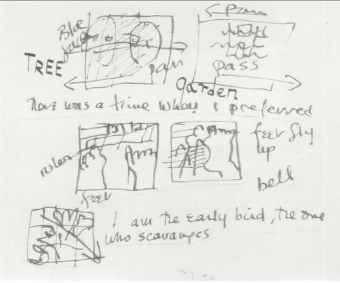 Blue
Pan
TREE
pan
pass
garden
There was a time when I preferred
feet fly
up
bell
feet
I am the early bird, the one
who scavanges